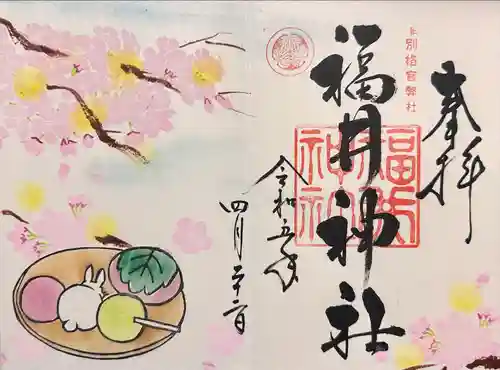 奉拝
別格官幣社
福井神社
福井神社
令和五年
四月二十二日